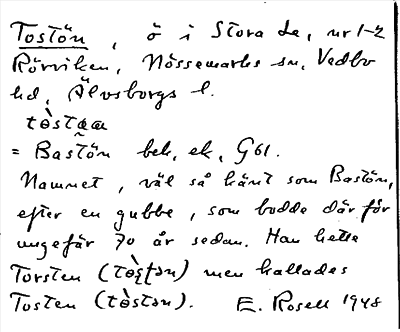 Tostön, ö i Stora Le, nr 1-2
Rörviken, Nössemarks sn, Vedbo
hd, Älvsborgs l.
tòstøn
= Bastön bek. ek. G61.
Namnet, väl så känt som Bastön,
efter en gubbe, som bodde där för
ungefär 70 år sedan. Han hette
Torsten (tòʂʈən) men kallades
Tosten (tòstən). E. Rosell 1948